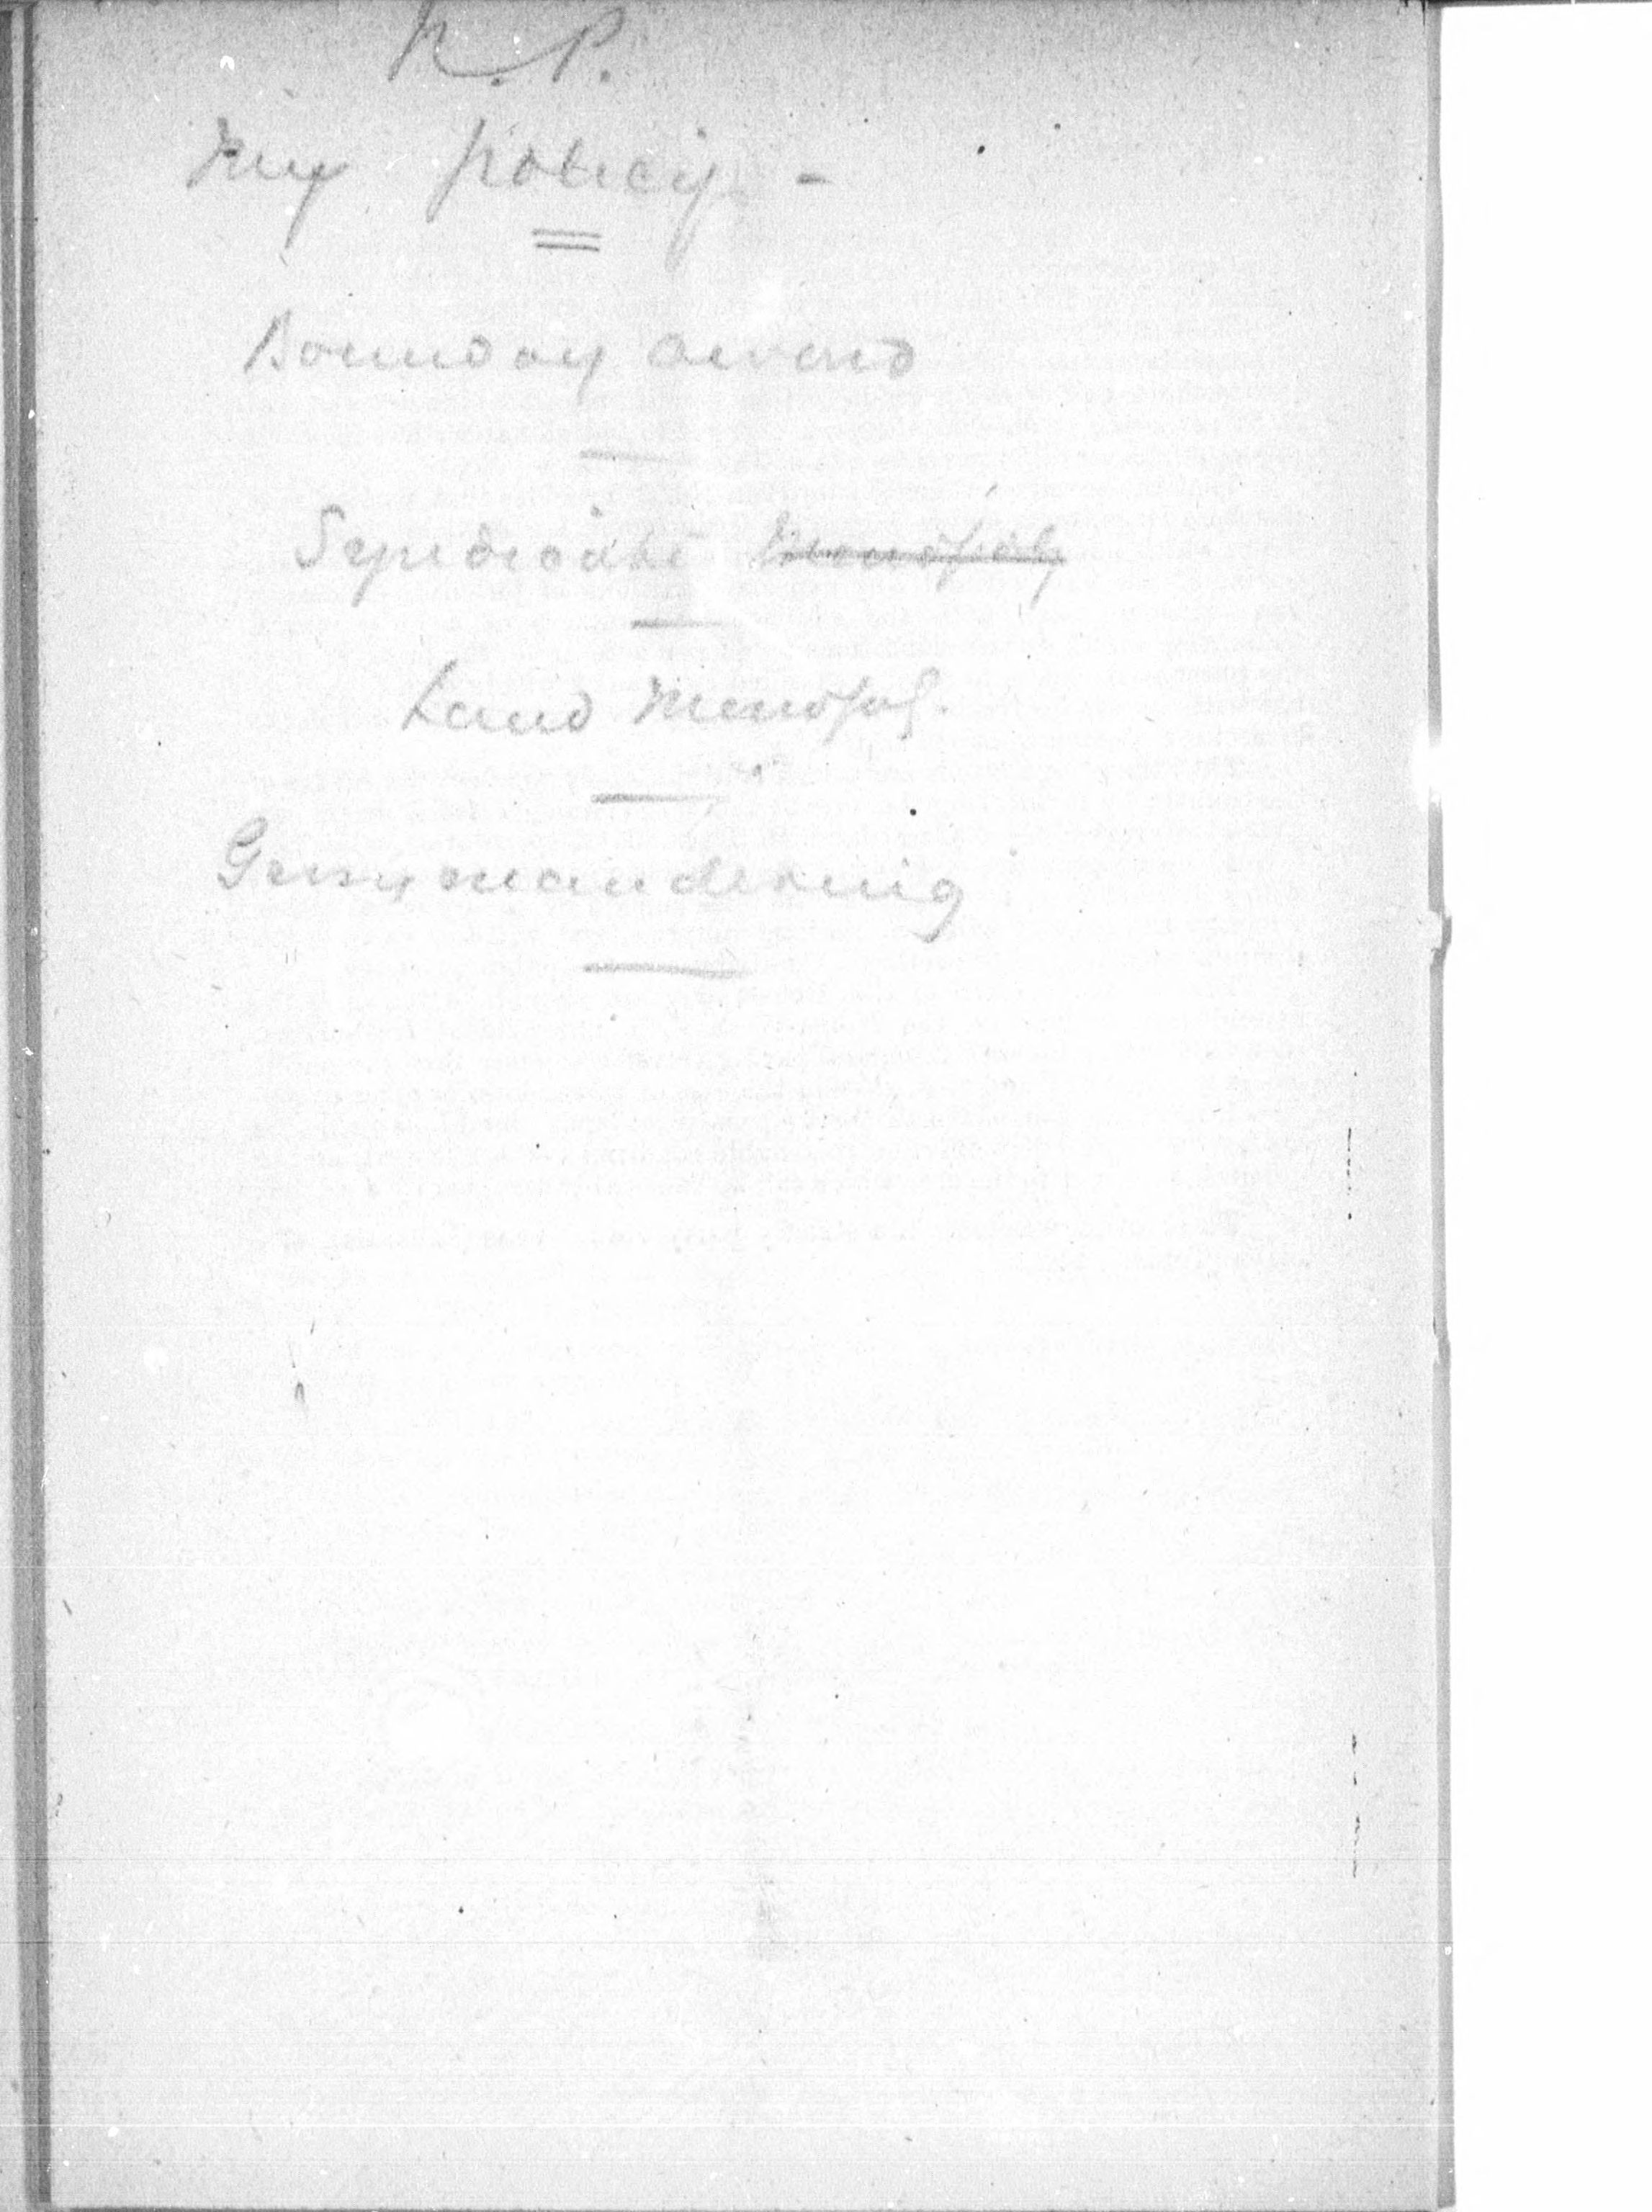 N.P.
My policy -
Boundary award
Syndicate ~~Monopoly~~
Land Monopol.
Gerrymandering